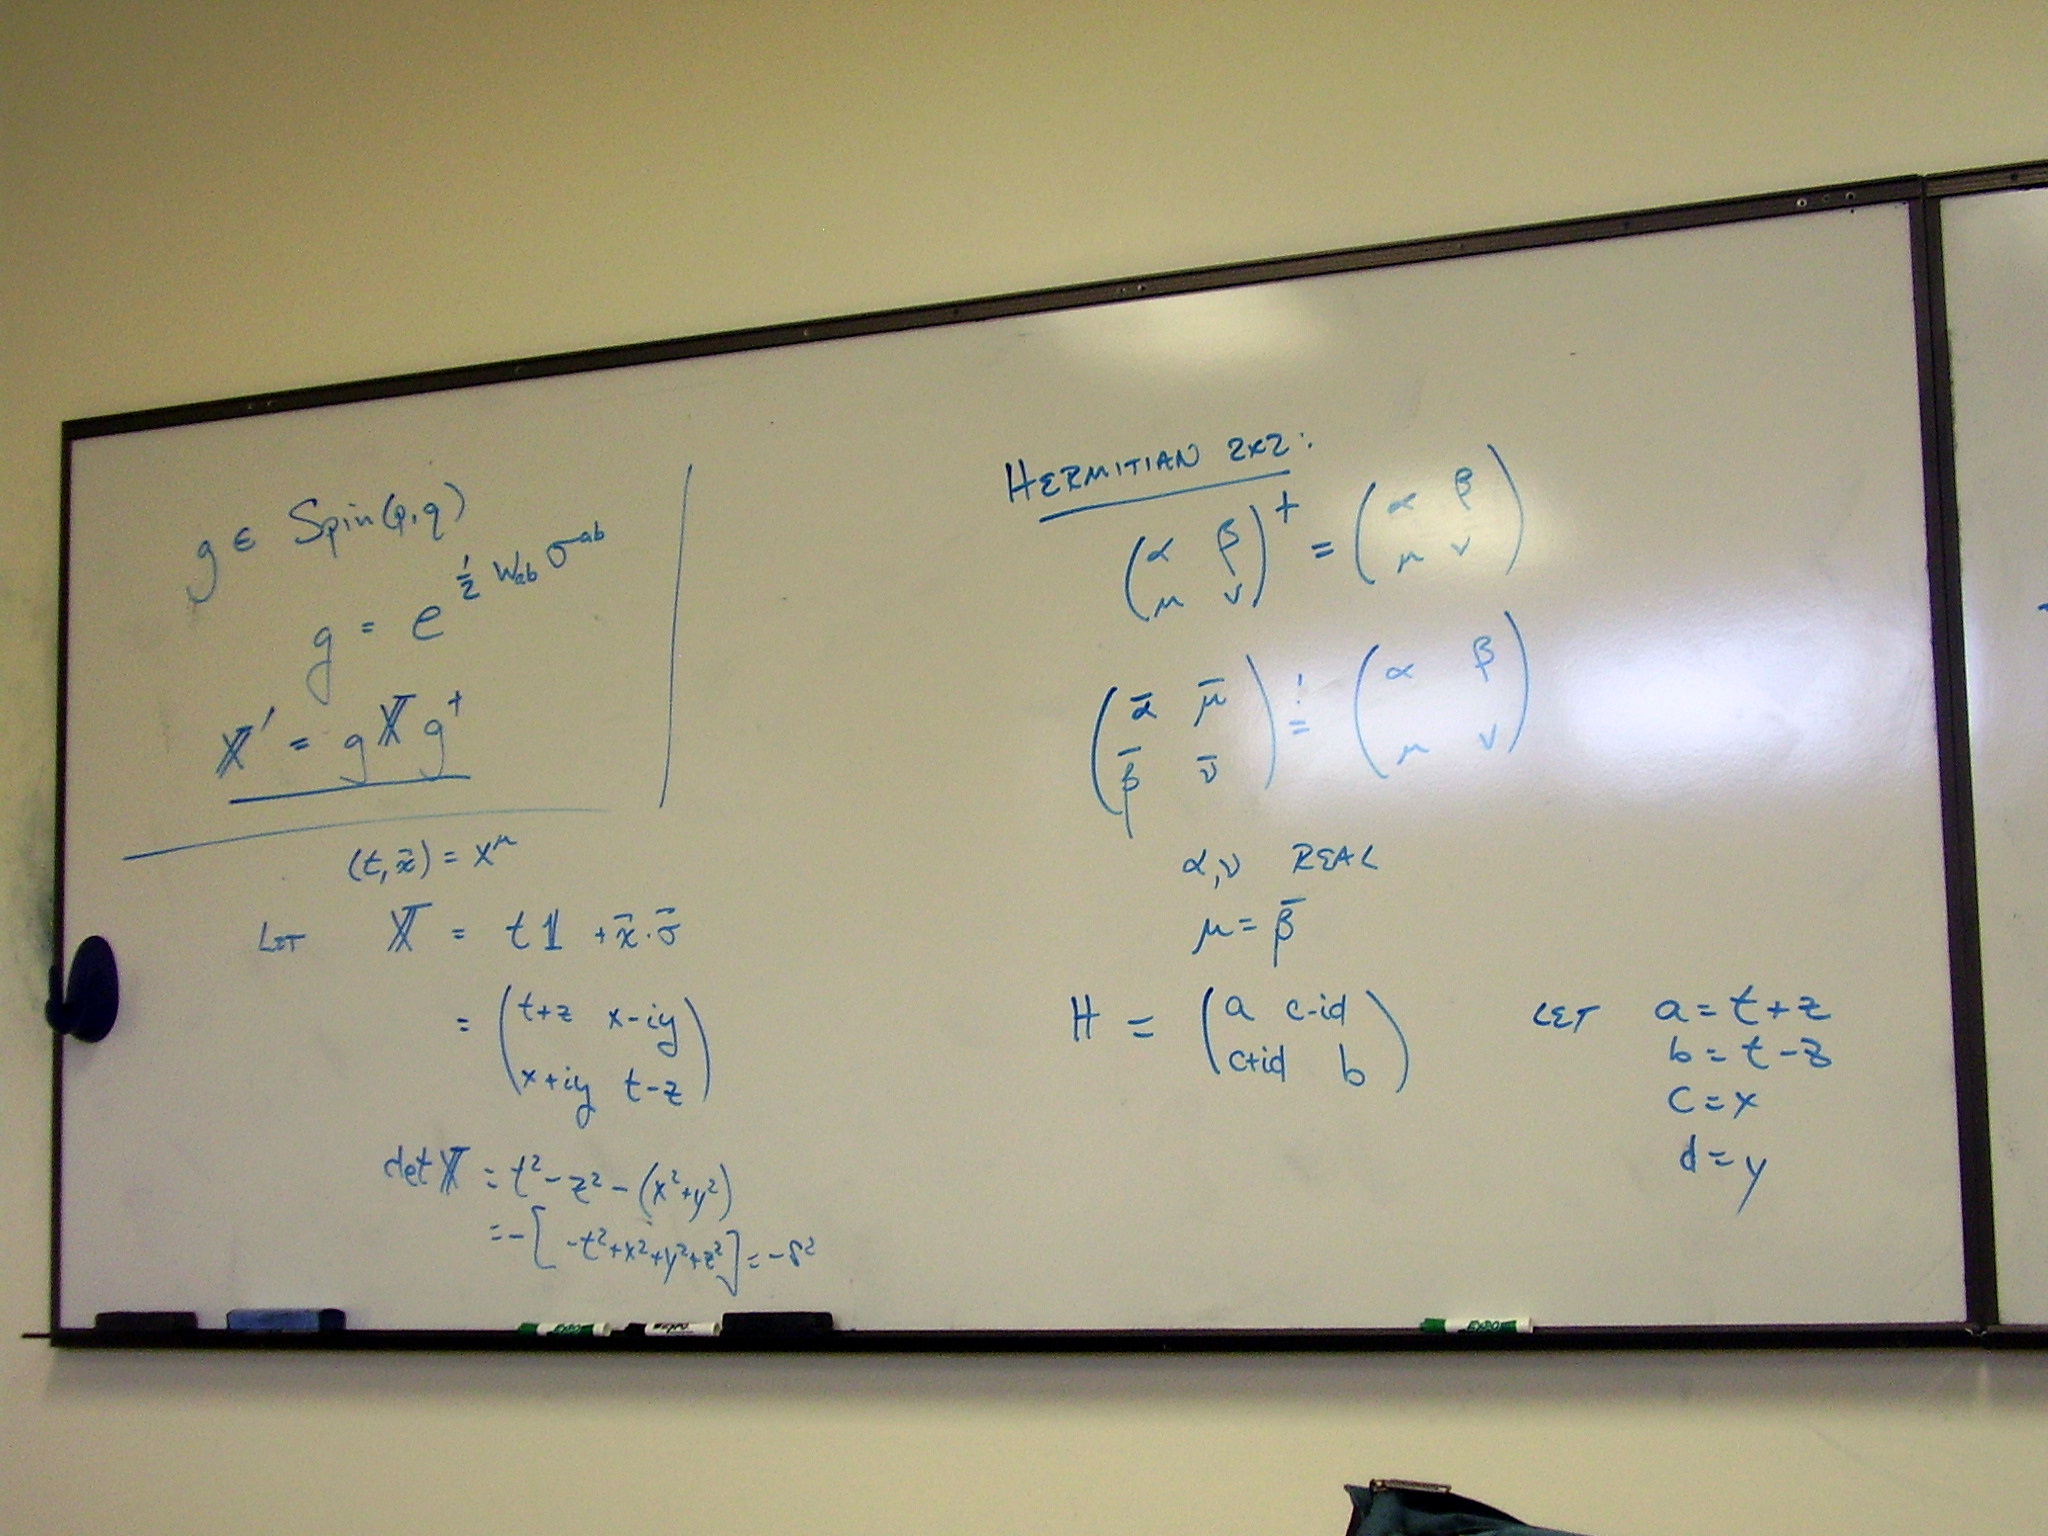 g ∈ Spin(p,q)
g = e^{½ W_{ab} σ^{ab}}
𝕏' = g 𝕏 g^†
(t, x⃗) = x^μ
LET 𝕏 = t𝟙 + x⃗·σ⃗
= (t+z x-iy
x+iy t-z)
det 𝕏 = t² - z² - (x²+y²)
= -[-t²+x²+y²+z²] = -s²
HERMITIAN 2x2:
(α β
μ ν)^† = (α β
μ ν)
(ᾱ μ̄
β̄ ν̄) =! (α β
μ ν)
α,ν REAL
μ = β̄
H = (a c-id
c+id b)
LET a = t+z
b = t-z
c = x
d = y
EXPO
EXPO
EXPO